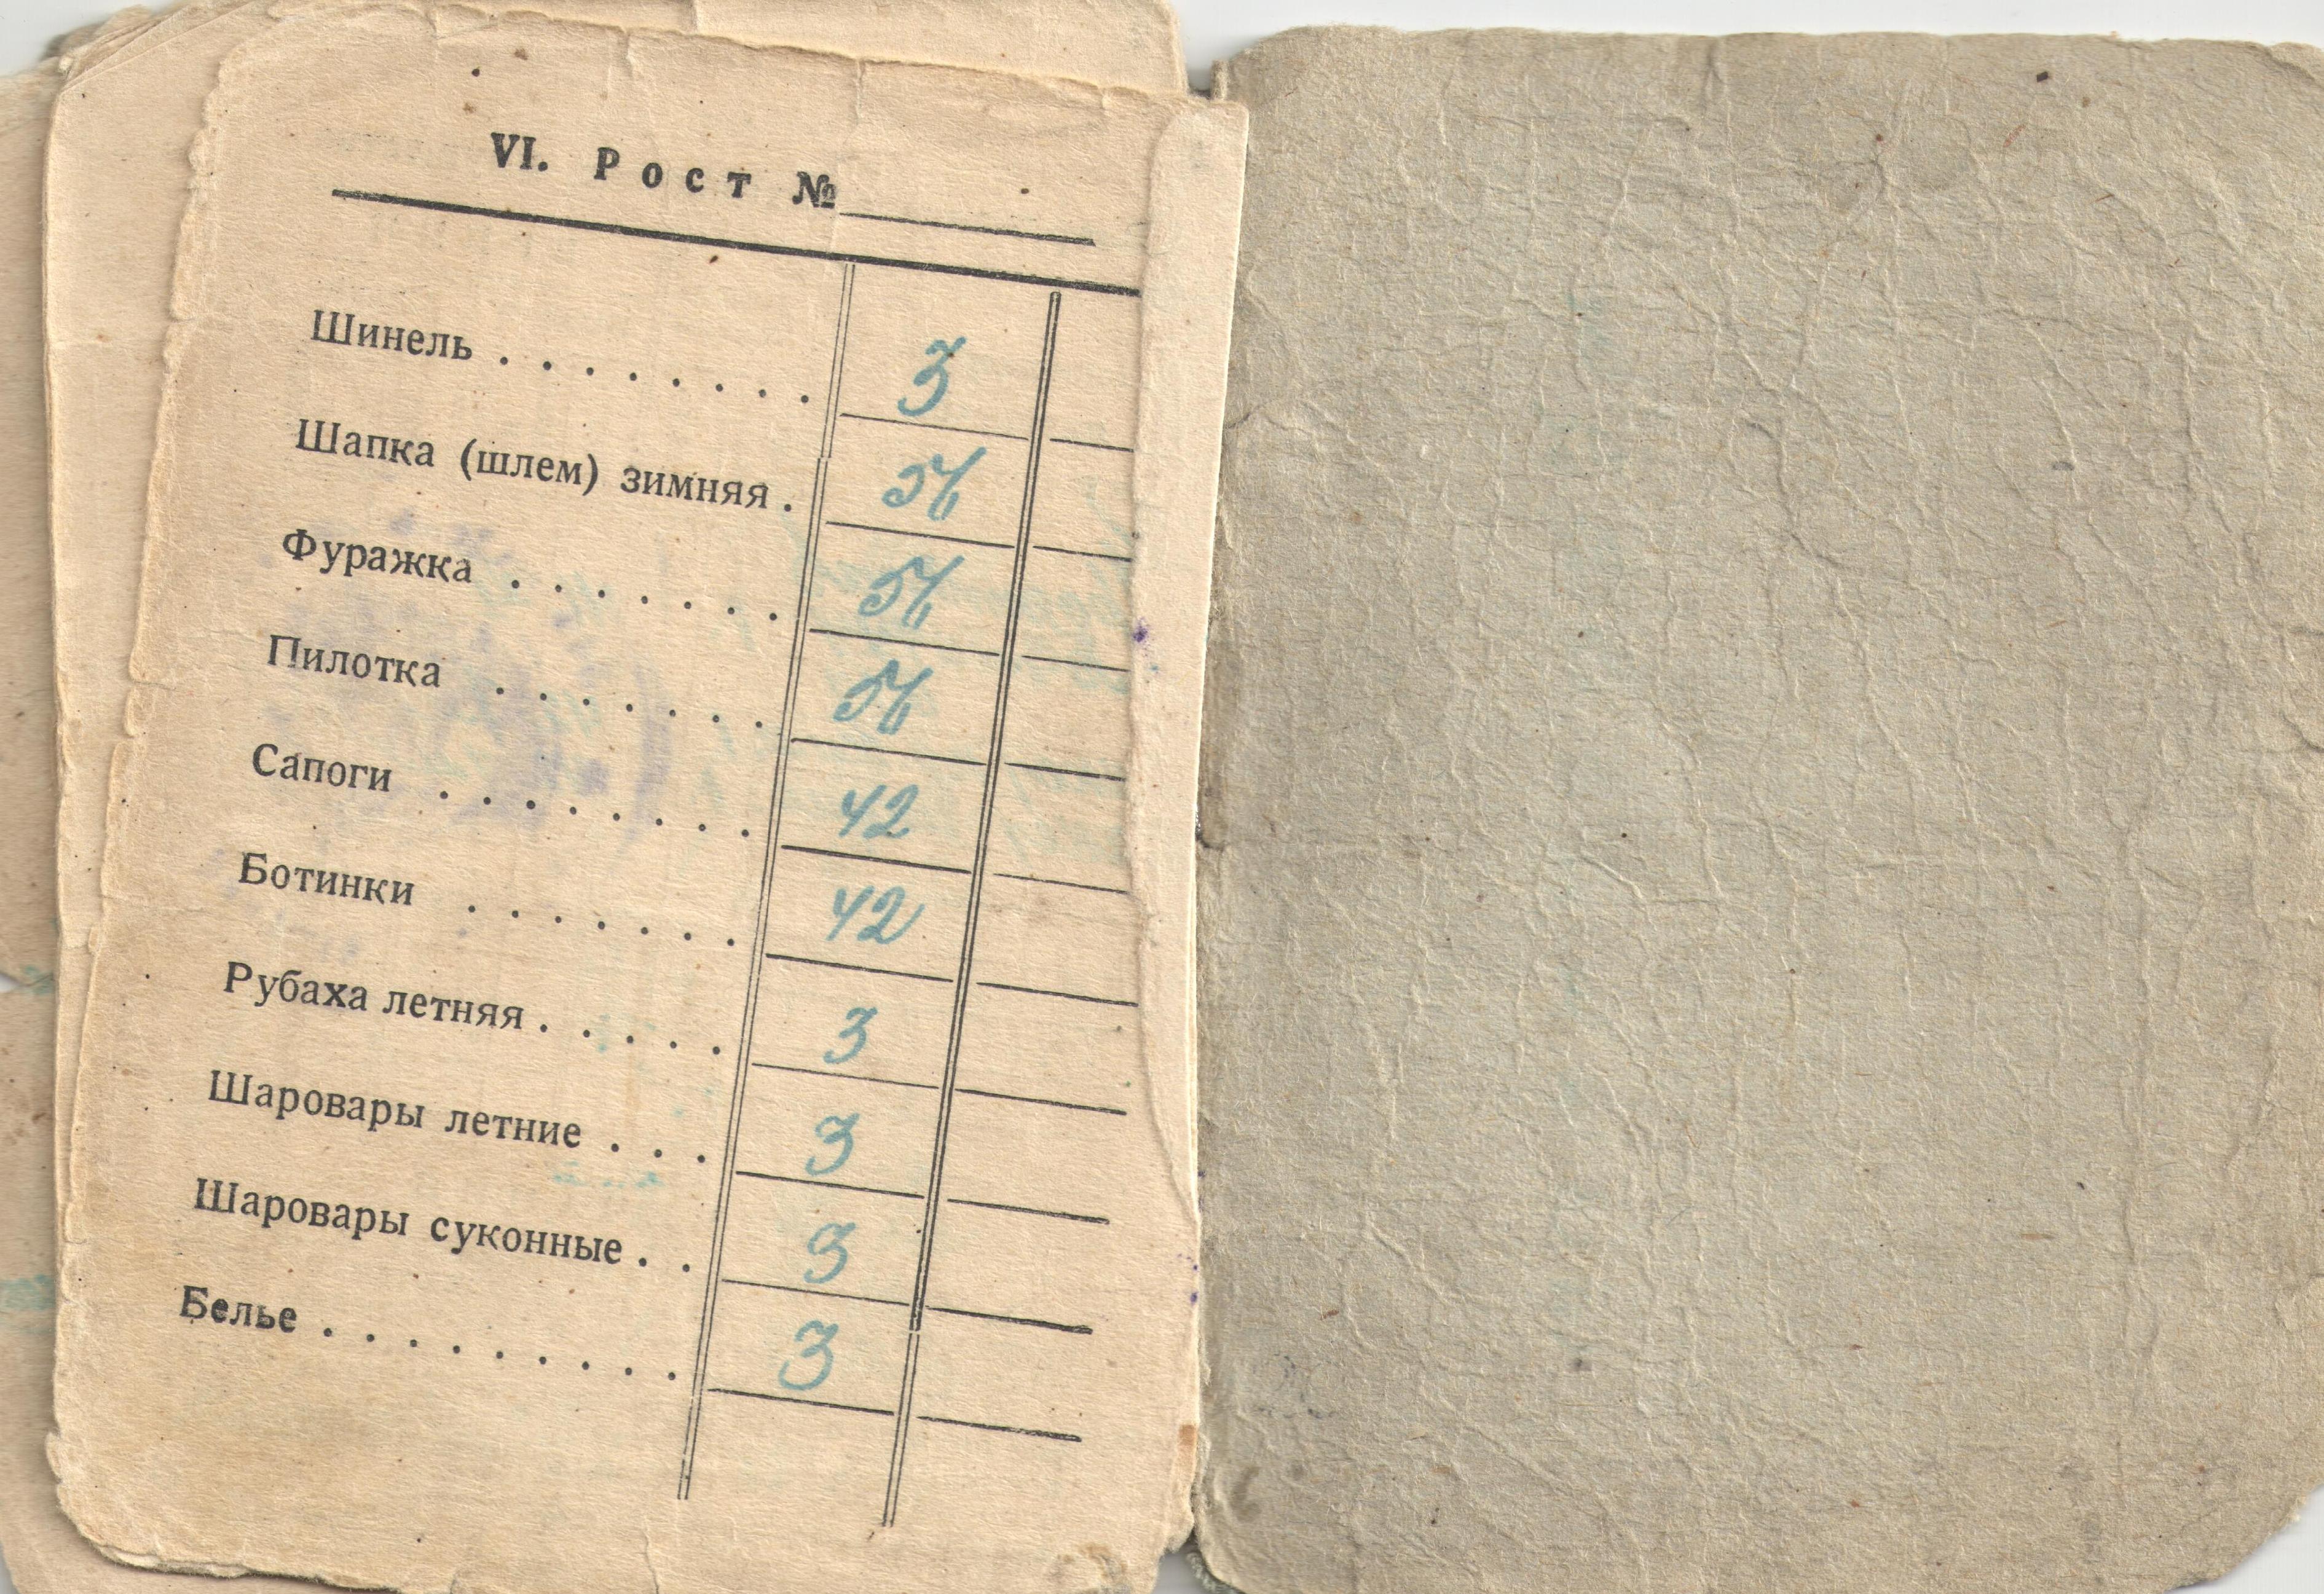 VI. Рост №
Шинель . . . . . . . . 3
Шапка (шлем) зимняя . 54
Фуражка . . . . . . . 54
Пилотка . . . . . . . 54
Сапоги . . . . . . . . 42
Ботинки . . . . . . . 42
Рубаха летняя . . . . . 3
Шаровары летние . . . 3
Шаровары суконные . . 3
Белье . . . . . . . . . 3